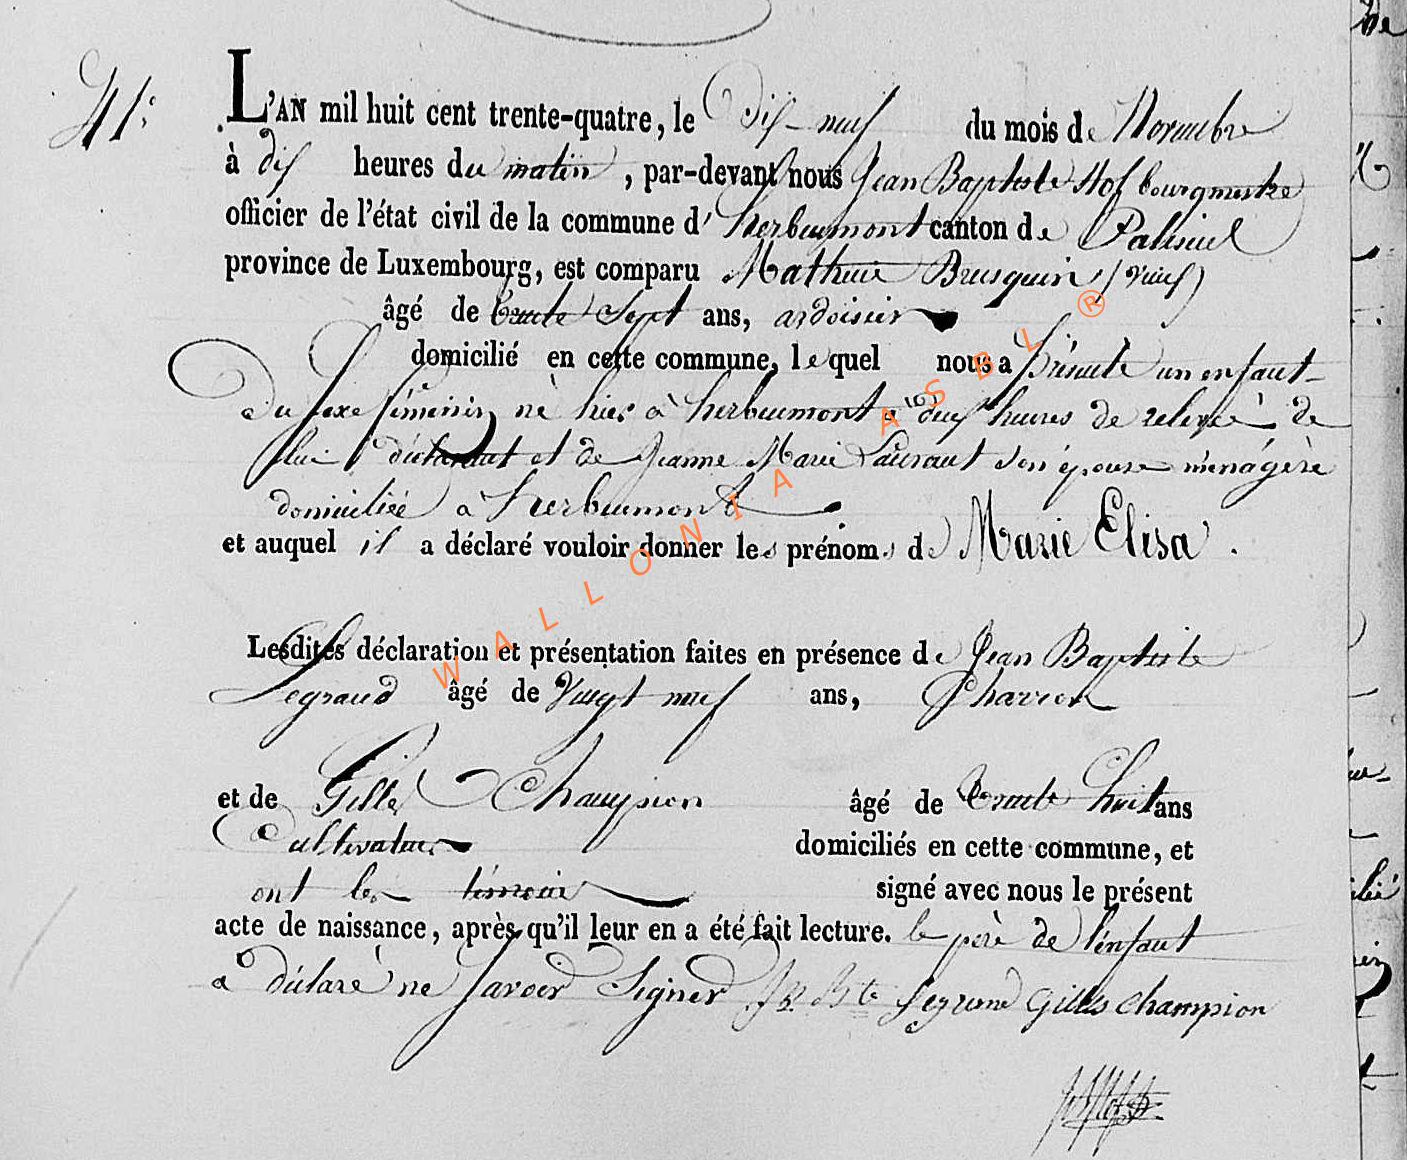 41.
L'AN mil huit cent trente-quatre, le dix-neuf du mois de Novembre
à dix heures du matin, par-devant nous Jean Baptiste Hof bourgmestre
officier de l'état civil de la commune d'herbeumont canton de Paliseul
province de Luxembourg, est comparu Mathieu Brusquin
âgé de trente Sept ans, ardoisier
domicilié en cette commune, lequel nous a présenté un enfant
du sexe féminin né hier à herbeumont à deux heures de relevée de
lui déclarant et de Jeanne Marie Laurant son épouse ménagère
domiciliée à herbeumont
et auquel il a déclaré vouloir donner les prénoms de Marie Elisa.
Lesdites déclaration et présentation faites en présence de Jean Baptiste
Legrand âgé de Vingt neuf ans, Charron
et de Gille Champion âgé de trente huit ans
Cultivateur domiciliés en cette commune, et
ont les témoins signé avec nous le présent
acte de naissance, après qu'il leur en a été fait lecture. le père de l'enfant
a déclaré ne savoir Signer J. Bte Legrand Gilles Champion
WALLONIA ASBL ®